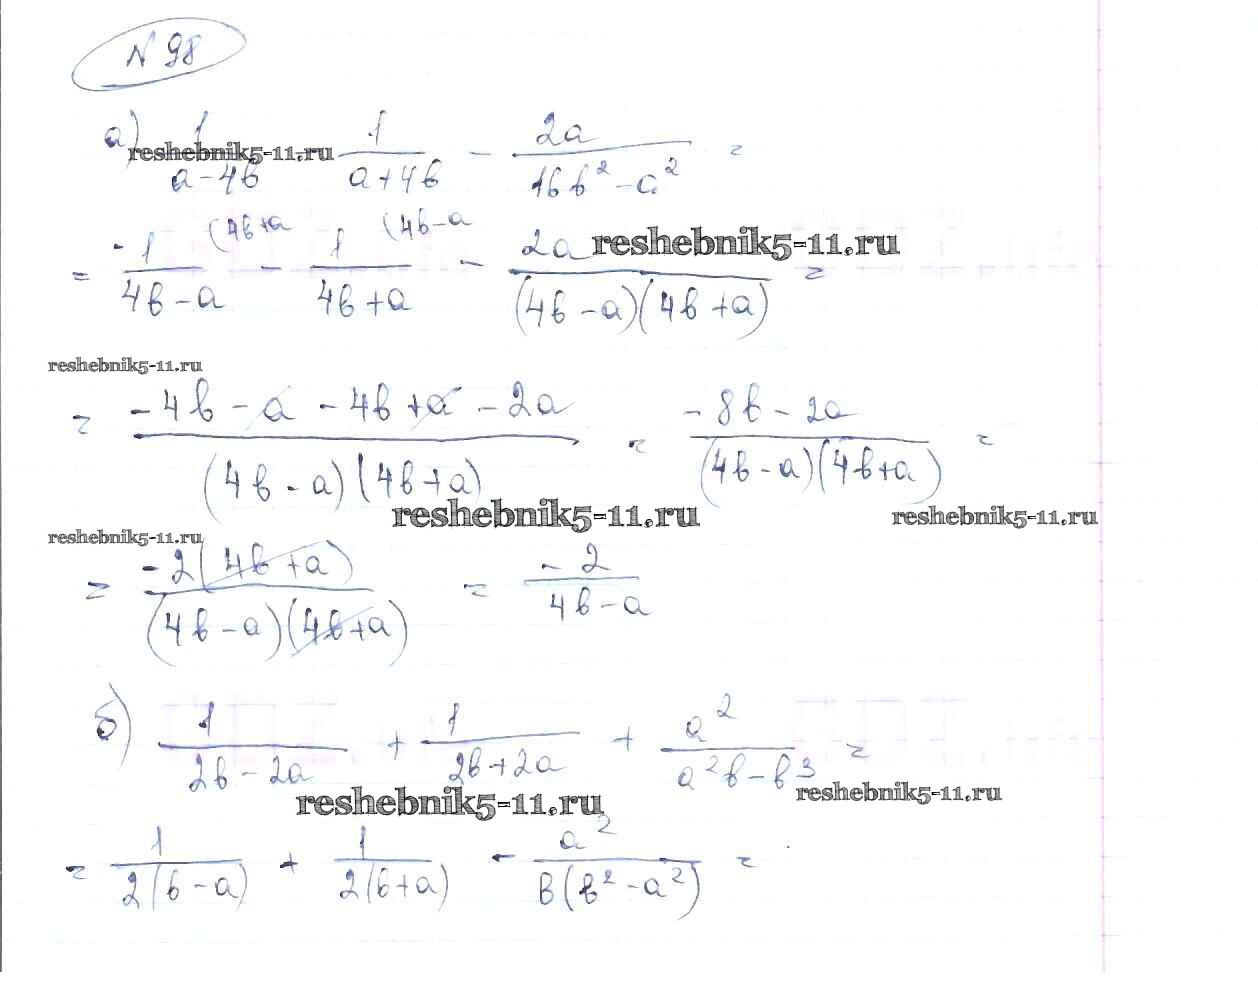 N 98
а) 1/(a-4b) 1/(a+4b) - 2a/(16b² - a²) =
reshebnik5-11.ru
= -1/(4b-a) (4b+a - 1/(4b+a) (4b-a - 2a/((4b-a)(4b+a)) =
reshebnik5-11.ru
reshebnik5-11.ru
= (-4b - a - 4b + a - 2a)/((4b-a)(4b+a)) = (-8b - 2a)/((4b-a)(4b+a)) =
reshebnik5-11.ru reshebnik5-11.ru
reshebnik5-11.ru
= -2(4b+a)/((4b-a)(4b+a)) = -2/(4b-a)
б) 1/(2b-2a) + 1/(2b+2a) + a²/(a²b-b³) =
reshebnik5-11.ru reshebnik5-11.ru
= 1/(2(b-a)) + 1/(2(b+a)) - a²/(b(b²-a²)) =